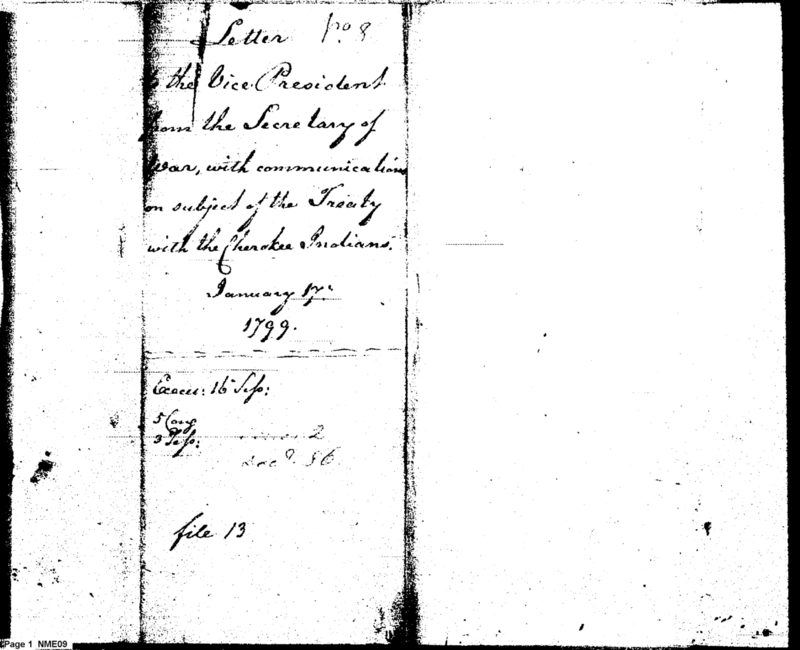 Letter No 8
to the Vice President
from the Secretary of
War, with communications
on subject of the Treaty
with the Cherokee Indians.
January 17.
1799.
Execu: 16 Sess:
5 Cong
3 Sess:
2
56
file 13
Page 1 NME09